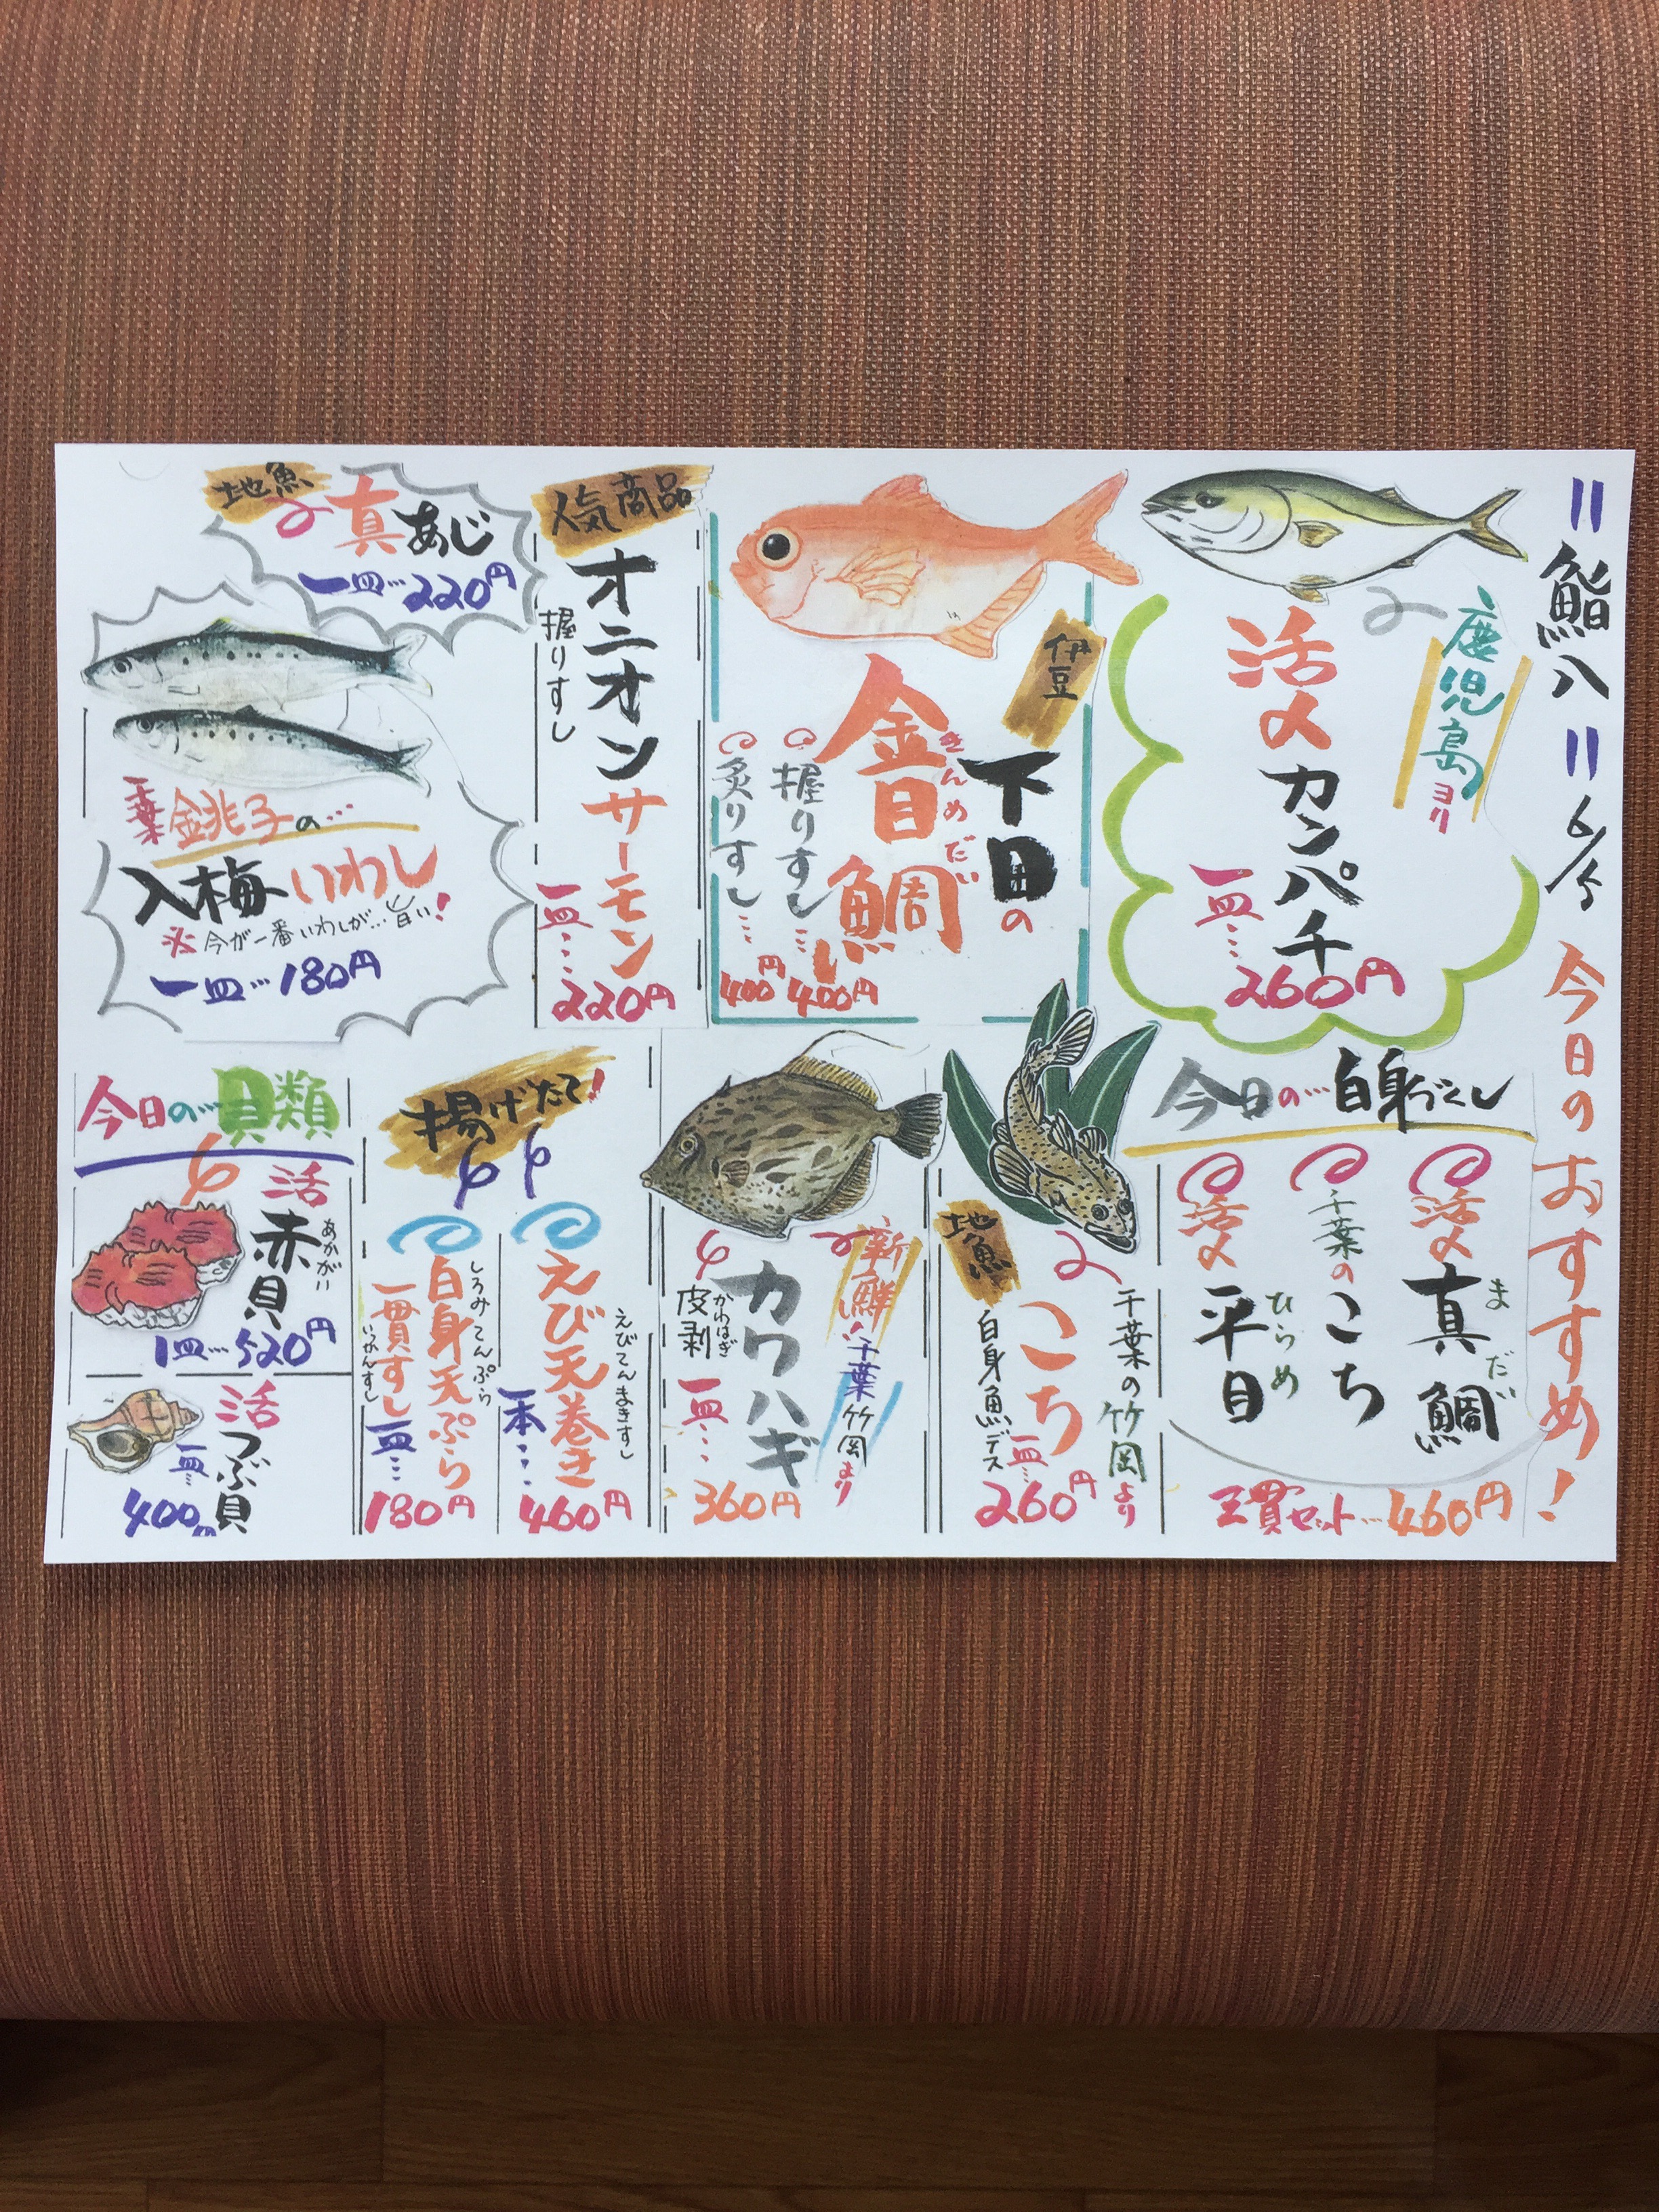 〃鮨八〃 6/5 今日のおすすめ!
鹿児島ヨリ
活〆カンパチ
一皿…260円
伊豆
下田の
金目鯛
きんめだい
握りすし…400円
炙りすし…400円
人気商品
オニオンサーモン
握りすし
一皿…220円
地魚
真あじ
一皿…220円
千葉銚子の…
入梅いわし
※今が一番いわしが…旨い!
一皿…180円
今日の…白身づくし
活〆真鯛
まだい
千葉のこち
活〆平目
ひらめ
三貫セット…460円
地魚
千葉の竹岡より
こち
白身魚デス
一皿…260円
新鮮!千葉竹岡より
カワハギ
かわはぎ
皮剥
一皿…360円
揚げたて!
えびてんまきすし
えび天巻き
一本…460円
しろみてんぷら
白身天ぷら
一貫すし
いっかんすし
一皿…180円
今日の…貝類
活赤貝
あかがい
1皿…520円
活つぶ貝
一皿…400円